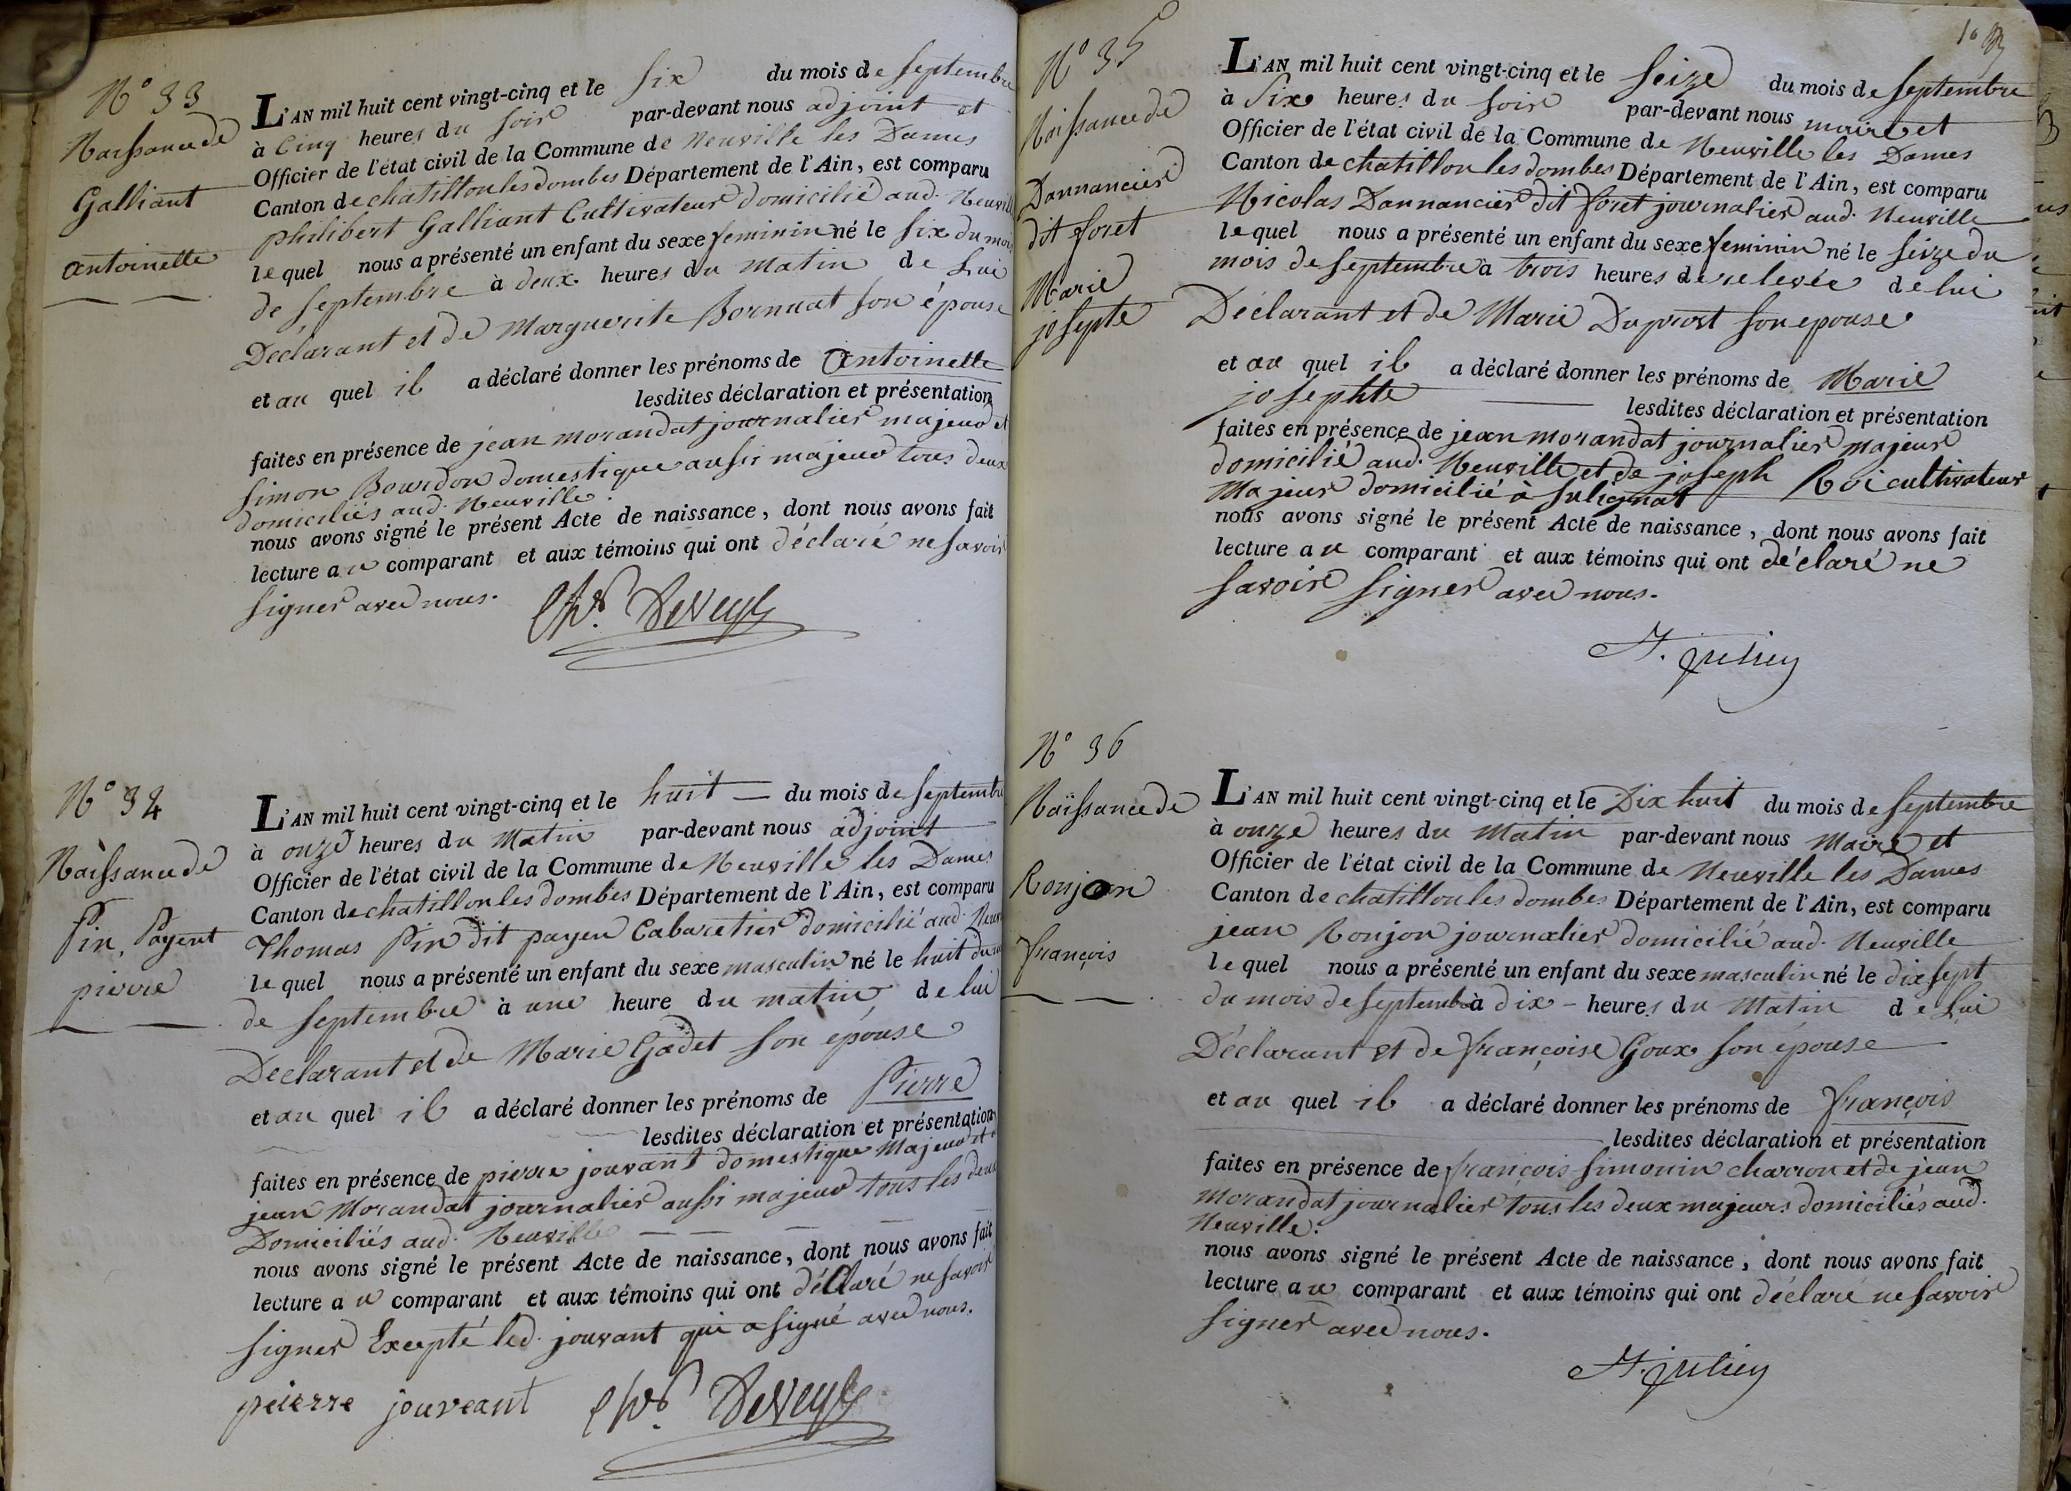 N° 33
Naissance de
Galliant
antoinette
L'AN mil huit cent vingt-cinq et le six du mois de septembre
à Cinq heures du soir par-devant nous adjoint et
Officier de l'état civil de la Commune de Neuville les Dames
Canton de chatillon les dombes Département de l'Ain, est comparu
philibert Galliant Cultivateur domicilié aud. Neuville
lequel nous a présenté un enfant du sexe feminin né le six du moi
de septembre à deux heures du Matin de Lui
Déclarant et de Marguerite Bornuat son épouse
et au quel il a déclaré donner les prénoms de Antoinette
lesdites déclaration et présentation
faites en présence de jean morandat journalier majeur et
simon Bourdon domestique aussi majeur tous deux
domiciliés aud. Neuville.
nous avons signé le présent Acte de naissance, dont nous avons fait
lecture au comparant et aux témoins qui ont déclaré ne savoir
signer avec nous.
N° 34
Naissance de
Pin, Payent
pierre
L'AN mil huit cent vingt-cinq et le huit du mois de septembre
à onze heures du Matin par-devant nous adjoint
Officier de l'état civil de la Commune de Neuville les Dames
Canton de chatillon les dombes Département de l'Ain, est comparu
Thomas Pin dit payen Cabaretier domicilié aud. Neuv
lequel nous a présenté un enfant du sexe masculin né le huit du
de septembre à une heure du matin de lui
Declarant et de Marie Gadet son épouse
et au quel il a déclaré donner les prénoms de Pierre
lesdites déclaration et présentation
faites en présence de pierre jouvant domestique Majeur et
jean Morandat journalier aussi majeur tous les deux
Domiciliés aud. Neuville
nous avons signé le présent Acte de naissance, dont nous avons fait
lecture au comparant et aux témoins qui ont déclaré ne savoir
signer Excepté led. jouvant qui a signé avec nous.
peierre jouveant
N° 35
Naissance de
Dannancier
dit foret
Marie
josepte
L'AN mil huit cent vingt-cinq et le seize du mois de septembre
à Six heures du soir par-devant nous maire et
Officier de l'état civil de la Commune de Neuville les Dames
Canton de chatillon les dombes Département de l'Ain, est comparu
Nicolas Dannancier dit foret journalier aud. Neuville
lequel nous a présenté un enfant du sexe feminin né le seize du
mois de septembre à trois heures de relevée de lui
Déclarant et de Marie Duprost son epouse
et au quel il a déclaré donner les prénoms de Marie
josephte lesdites déclaration et présentation
faites en présence de jean morandat journalier majeur
domicilié aud. Neuville et de joseph Roi cultivateur
Majeur domicilié à sulignat
nous avons signé le présent Acte de naissance, dont nous avons fait
lecture au comparant et aux témoins qui ont déclaré ne
savoir signer avec nous.
N° 36
Naissance de
Ronjon
françois
L'AN mil huit cent vingt-cinq et le Dix huit du mois de septembre
à onze heures du Matin par-devant nous Maire et
Officier de l'état civil de la Commune de Neuville les Dames
Canton de chatillon les dombes Département de l'Ain, est comparu
jean Ronjon journalier domicilié aud. Neuville
lequel nous a présenté un enfant du sexe masculin né le dix sept
du mois de septemb à dix - heures du Matin de Lui
Déclarant et de françoise Goux son épouse
et au quel il a déclaré donner les prénoms de françois
lesdites déclaration et présentation
faites en présence de françois simonin charron et de jean
morandat journalier tous les deux majeurs domiciliés aud.
Neuville.
nous avons signé le présent Acte de naissance, dont nous avons fait
lecture au comparant et aux témoins qui ont déclaré ne savoir
signer avec nous.